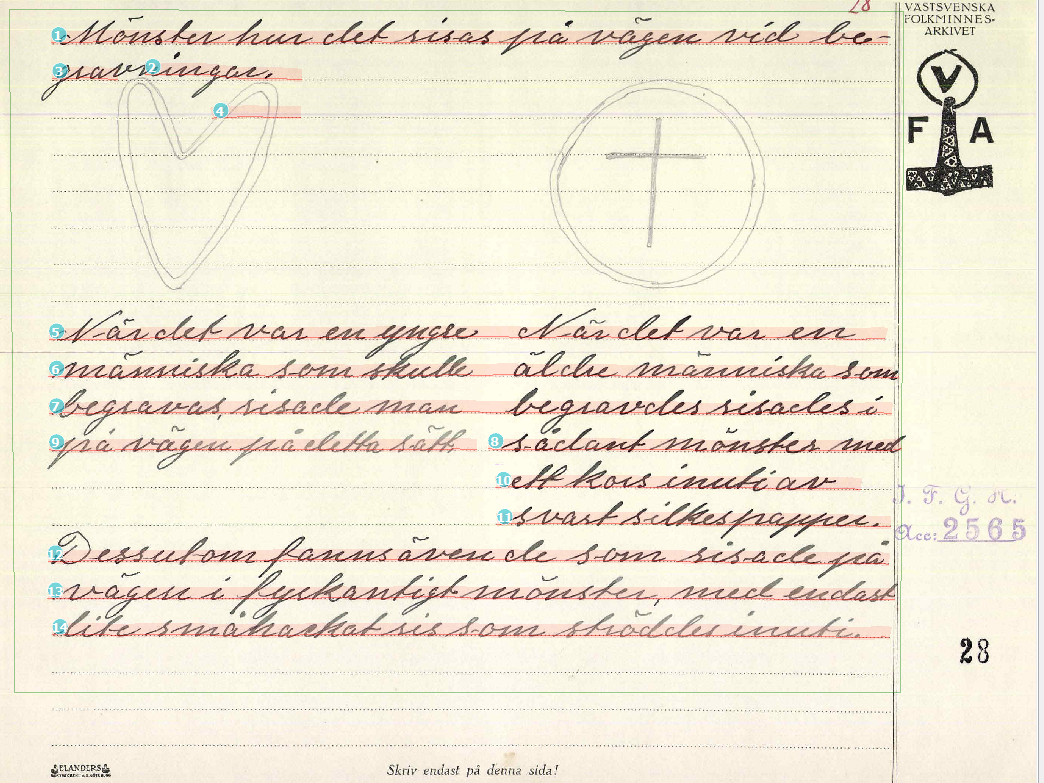 28
VÄSTSVENSKA
FOLKMINNES-
ARKIVET
V
F A
Mönster hur det risas på vägen vid be-
gravningar.
När det var en yngre
människa som skulle
begravas, risade man
på vägen på detta sätt.
När det var en
äldre människa som
begravdes risades i
sådant mönster med
ett kors inuti av
svart silkespapper.
Dessutom fanns även de som risade på
vägen i fyrkantigt mönster, med endast
lite småhackat ris som ströddes inuti.
I. F. G. H.
Acc: 2565
28
ELANDERS
Skriv endast på denna sida!